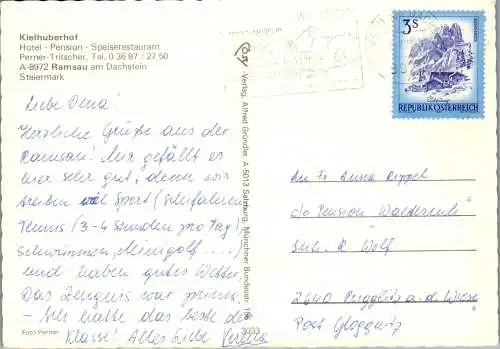 Kielhuberhof
Hotel · Pension · Speiserestaurant
Perner-Tritscher, Tel. 0 36 87 / 27 50
A-8972 Ramsau am Dachstein
Steiermark
3 S
REPUBLIK ÖSTERREICH
Liebe Oma!
Herzliche Grüße aus der
Ramsau! Mir gefällt es
hier sehr gut, denn wir
treiben viel Sport (Schifahren,
Tennis / 3-4 Stunden pro Tag /
Schwimmen, Minigolf ....)
und haben gutes Wetter.
Das Zeugnis war prima
– Ich hatte das beste der
Klasse! Alles Liebe
Verlag Alfred Gründler, A 5013 Salzburg, Münchner Bundesstr.
3033
Foto Perner
An Fr. Anna Rippel
c/o Pension Waldesruh
Wolf
2640 a. d. Wiese
Post Gloggnitz